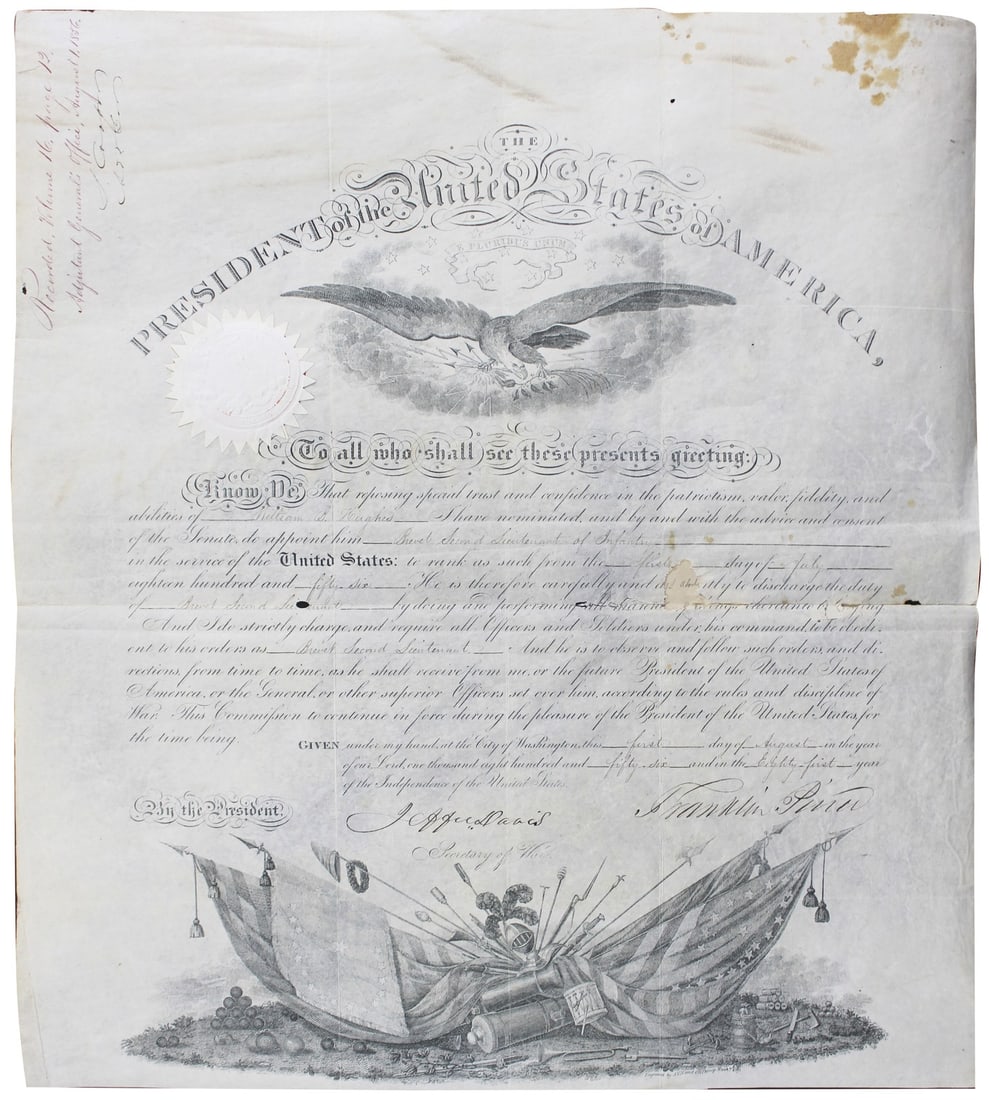 Recorded, Volume 16, page 13
Adjutant General's Office, August 1, 1856.
THE
PRESIDENT of the United States of AMERICA,
E PLURIBUS UNUM
To all who shall see these presents greeting:
Know Ye, That reposing special trust and confidence in the patriotism, valor, fidelity, and
abilities of William B. Hughes I have nominated, and by and with the advice and consent
of the Senate, do appoint him Brevet Second Lieutenant of Infantry
in the service of the United States: to rank as such from the first day of July
eighteen hundred and fifty six. He is therefore carefully and diligently to discharge the duty
of Brevet Second Lieutenant by doing and performing all manner of things thereunto belonging
And I do strictly charge, and require all Officers and Soldiers under his command, to be obedi-
ent to his orders as Brevet Second Lieutenant And he is to observe and follow such orders, and di-
rections, from time to time, as he shall receive from me, or the future President of the United States of
America, or the General, or other superior Officers set over him, according to the rules and discipline of
War. This Commission to continue in force during the pleasure of the President of the United States, for
the time being.
GIVEN under my hand, at the City of Washington, this first day of August in the year
of our Lord, one thousand eight hundred and fifty six and in the Eighty-first year
of the Independence of the United States.
By the President,
Jeffer. Davis
Franklin Pierce
Secretary of War.